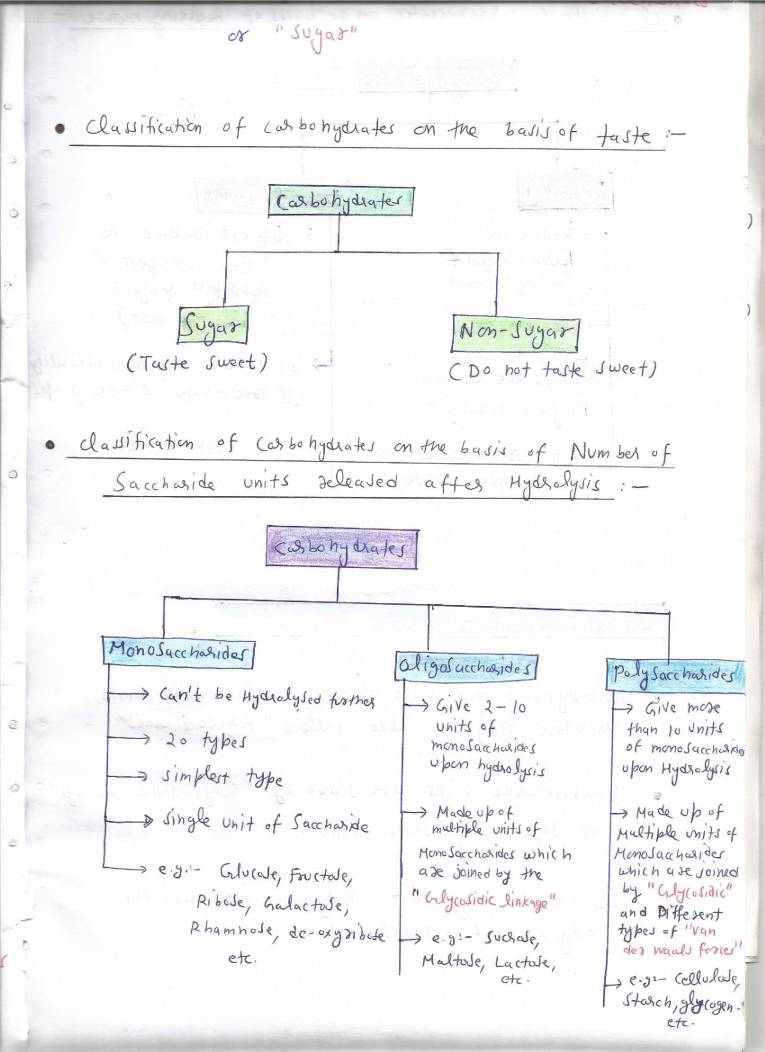 or "Sugar"
• Classification of Carbohydrates on the basis of taste :-
Carbohydrates
Sugar
(Taste sweet)
Non-Sugar
(Do not taste sweet)
• Classification of Carbohydrates on the basis of Number of
Saccharide units released after Hydrolysis :-
Carbohydrates
Monosaccharides
→ Can't be Hydrolysed further
→ 20 types
→ simplest type
→ single unit of Saccharide
→ e.g:- Glucose, Fructose,
Ribose, Galactose,
Rhamnose, de-oxyribose
etc.
Oligosaccharides
→ Give 2-10
units of
monosaccharides
upon hydrolysis
→ Made up of
multiple units of
Monosaccharides which
are joined by the
"Glycosidic linkage"
→ e.g:- Sucrose,
Maltose, Lactose,
etc.
Polysaccharides
→ Give more
than 10 units
of monosaccharide
upon Hydrolysis
→ Made up of
Multiple units of
Monosaccharides
which are joined
by "Glycosidic"
and Different
types of "Van
der waals forces"
→ e.g:- Cellulose,
Starch, glycogen.
etc.